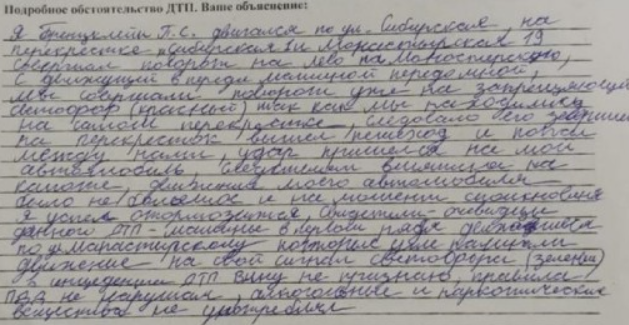 Подробное обстоятельство ДТП. Ваше объяснение:
Я П.С. двигался по ул. Сибирская, на
перекрестке Сибирская и Монастырская 19
совершал поворот на лево на Монастырскую,
с движущей в переди машиной передомной,
мы совершали поворот уже на запрещающий
светофор (красный) так как мы находились
на самом перекрестке, следовало его завершить
на перекресток вышел пешеход и попал
между нами, удар пришелся на мой
автомобиль, на
капоте, движения моего автомобиля
было не и на момент
Я успел отормозится, свидетели-очевидцы
данного ДТП - машины в первом ряду
по которые уже начали
движение на свой сигнал светофора (зеленый)
в инциденте ДТП вину не признаю, правила
ПДД не нарушал, алкогольные и наркотические
вещества не употреблял